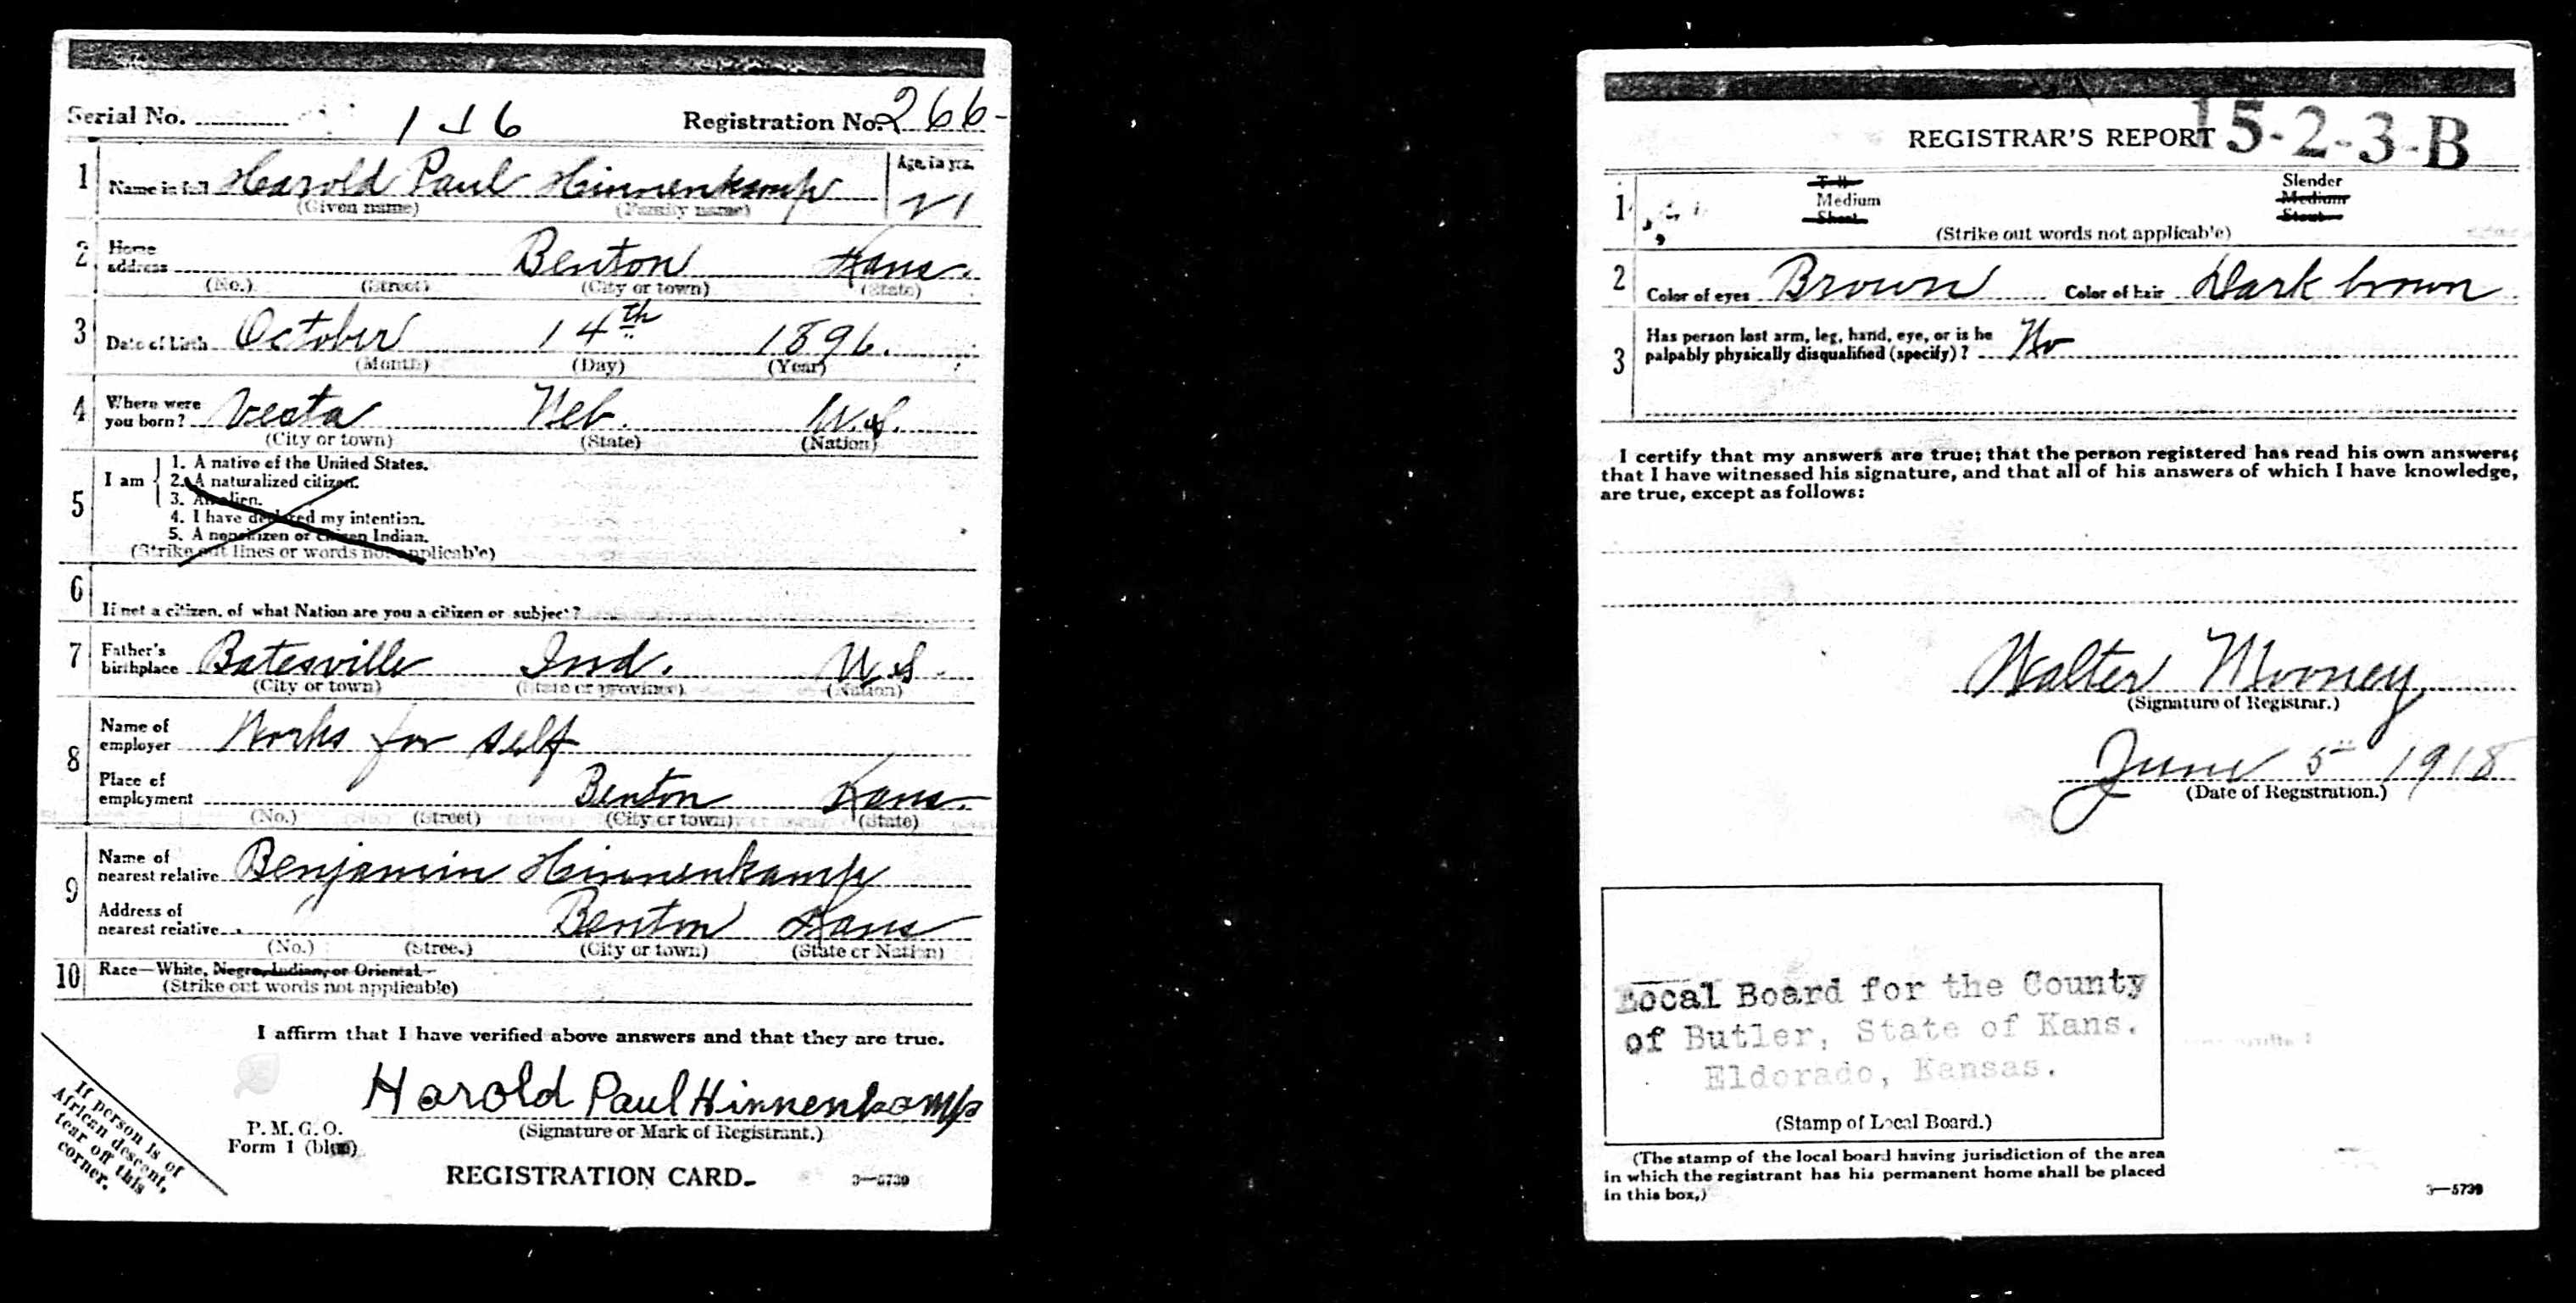 Serial No. 1 6 Registration No. 266-
1 Name in full Harold Paul Hinnenkamp Age, in yrs. 21
(Given name) (Family name)
2 Home address Benton Kans.
(No.) (Street) (City or town) (State)
3 Date of birth October 14th 1896.
(Month) (Day) (Year)
4 Where were you born? Vesta Neb. U.S.
(City or town) (State) (Nation)
5 I am
1. A native of the United States.
2. A naturalized citizen.
3. An alien.
4. I have declared my intention.
5. A noncitizen or citizen Indian.
(Strike out lines or words not applicable)
6 If not a citizen, of what Nation are you a citizen or subject?
7 Father's birthplace Batesville Ind. U.S.
(City or town) (State or province) (Nation)
8 Name of employer Works for self
Place of employment Benton Kans.
(No.) (Street) (City or town) (State)
9 Name of nearest relative Benjamin Hinnenkamp
Address of nearest relative Benton Kans
(No.) (Street) (City or town) (State or Nation)
10 Race—White, Negro, Indian, or Oriental
(Strike out words not applicable)
I affirm that I have verified above answers and that they are true.
Harold Paul Hinnenkamp
(Signature or Mark of Registrant.)
P. M. G. O.
Form 1 (blue)
REGISTRATION CARD.
3—5739
If person is of
African descent,
tear off this
corner.
15-2-3-B
REGISTRAR'S REPORT
1 Tall Slender
Medium Medium
Short Stout
(Strike out words not applicable)
2 Color of eyes Brown Color of hair Dark brown
3 Has person lost arm, leg, hand, eye, or is he
palpably physically disqualified (specify)? No
I certify that my answers are true; that the person registered has read his own answers;
that I have witnessed his signature, and that all of his answers of which I have knowledge,
are true, except as follows:
Walter Mooney
(Signature of Registrar.)
June 5 1918
(Date of Registration.)
Local Board for the County
of Butler, State of Kans.
Eldorado, Kansas.
(Stamp of Local Board.)
(The stamp of the local board having jurisdiction of the area
in which the registrant has his permanent home shall be placed
in this box.)
3—5739